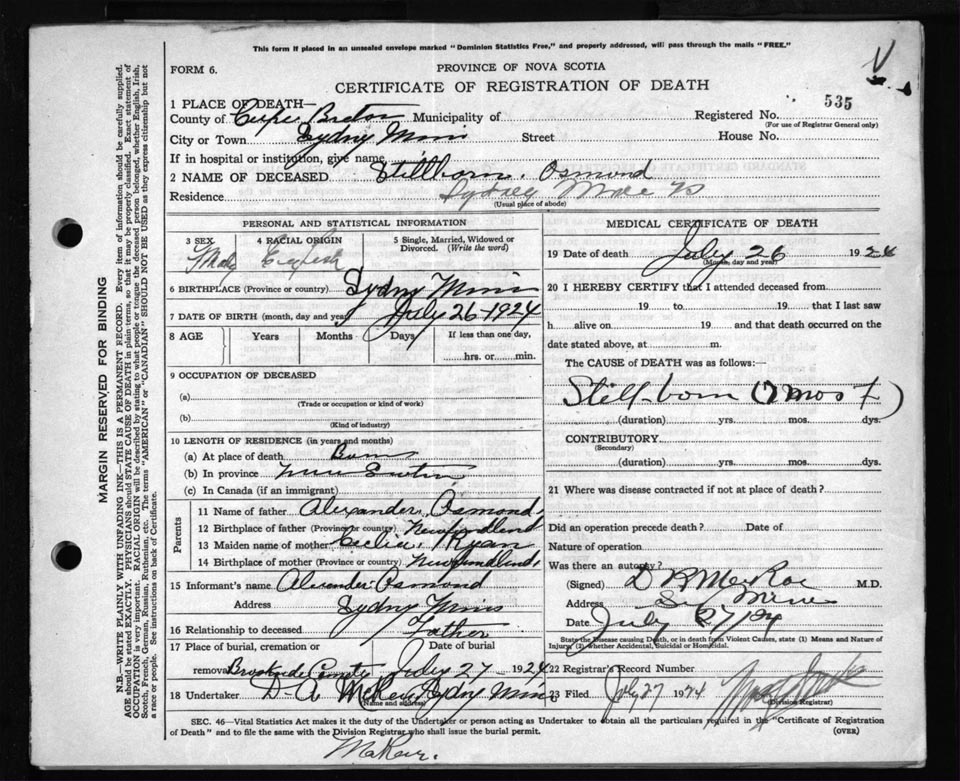 This form if placed in an unsealed envelope marked "Dominion Statistics Free," and properly addressed, will pass through the mails "FREE."
FORM 6.
PROVINCE OF NOVA SCOTIA
CERTIFICATE OF REGISTRATION OF DEATH
535
1 PLACE OF DEATH—
County of Cape Breton Municipality of Registered No.
(For use of Registrar General only)
City or Town Sydny Mins Street House No.
If in hospital or institution, give name
2 NAME OF DECEASED Stillborn. Osmond
Residence Sydney Mines
(Usual place of abode)
PERSONAL AND STATISTICAL INFORMATION
3 SEX 4 RACIAL ORIGIN 5 Single, Married, Widowed or Divorced. (Write the word)
Male English
6 BIRTHPLACE (Province or country) Sydny Mins
7 DATE OF BIRTH (month, day and year) July 26-1924
8 AGE Years Months Days If less than one day,
hrs. or min.
9 OCCUPATION OF DECEASED
(a)
(Trade or occupation or kind of work)
(b)
(Kind of industry)
10 LENGTH OF RESIDENCE (in years and months)
(a) At place of death Born
(b) In province
(c) In Canada (if an immigrant)
Parents
11 Name of father Alexander Osmond,
12 Birthplace of father (Province or country) Newfundland,
13 Maiden name of mother Cecilia Ryan
14 Birthplace of mother (Province or country) Newfoundland,
15 Informant's name Alexander Osmond
Address Sydny Mins
16 Relationship to deceased Father
17 Place of burial, cremation or Date of burial
removal July 27-1924
18 Undertaker D. A. Sydny Mins
(Name and address)
MEDICAL CERTIFICATE OF DEATH
19 Date of death July 26 1924
(Month, day and year)
20 I HEREBY CERTIFY that I attended deceased from
19 to 19 that I last saw
h alive on 19 and that death occurred on
date stated above, at m.
The CAUSE of DEATH was as follows:—
Still-born (7 mos +)
(duration) yrs. mos. dys.
CONTRIBUTORY
(Secondary)
(duration) yrs. mos. dys.
21 Where was disease contracted if not at place of death?
Did an operation precede death? Date of
Nature of operation
Was there an autopsy?
(Signed) M.D.
Address
Date July 27/24
State the Disease causing Death, or in death from Violent Causes, state (1) Means and Nature of
Injury, (2) whether Accidental, Suicidal or Homicidal.
22 Registrar's Record Number
23 Filed July 27 1924
(Division Registrar)
SEC. 46—Vital Statistics Act makes it the duty of the Undertaker or person acting as Undertaker to obtain all the particulars required in the "Certificate of Registration
of Death" and to file the same with the Division Registrar who shall issue the burial permit. (OVER)
MARGIN RESERVED FOR BINDING
N.B.—WRITE PLAINLY WITH UNFADING INK—THIS IS A PERMANENT RECORD. Every item of information should be carefully supplied.
AGE should be stated EXACTLY. PHYSICIANS should STATE CAUSE OF DEATH in plain terms, so that it may be properly classified. Exact statement of
OCCUPATION is very important. RACIAL ORIGIN will be described by stating to what people or tongue the deceased person belonged, whether English, Irish,
Scotch, French, German, Russian, Ruthenian, etc. The terms "AMERICAN" or "CANADIAN" SHOULD NOT BE USED as they express citizenship but not
a race or people. See instructions on back of Certificate.